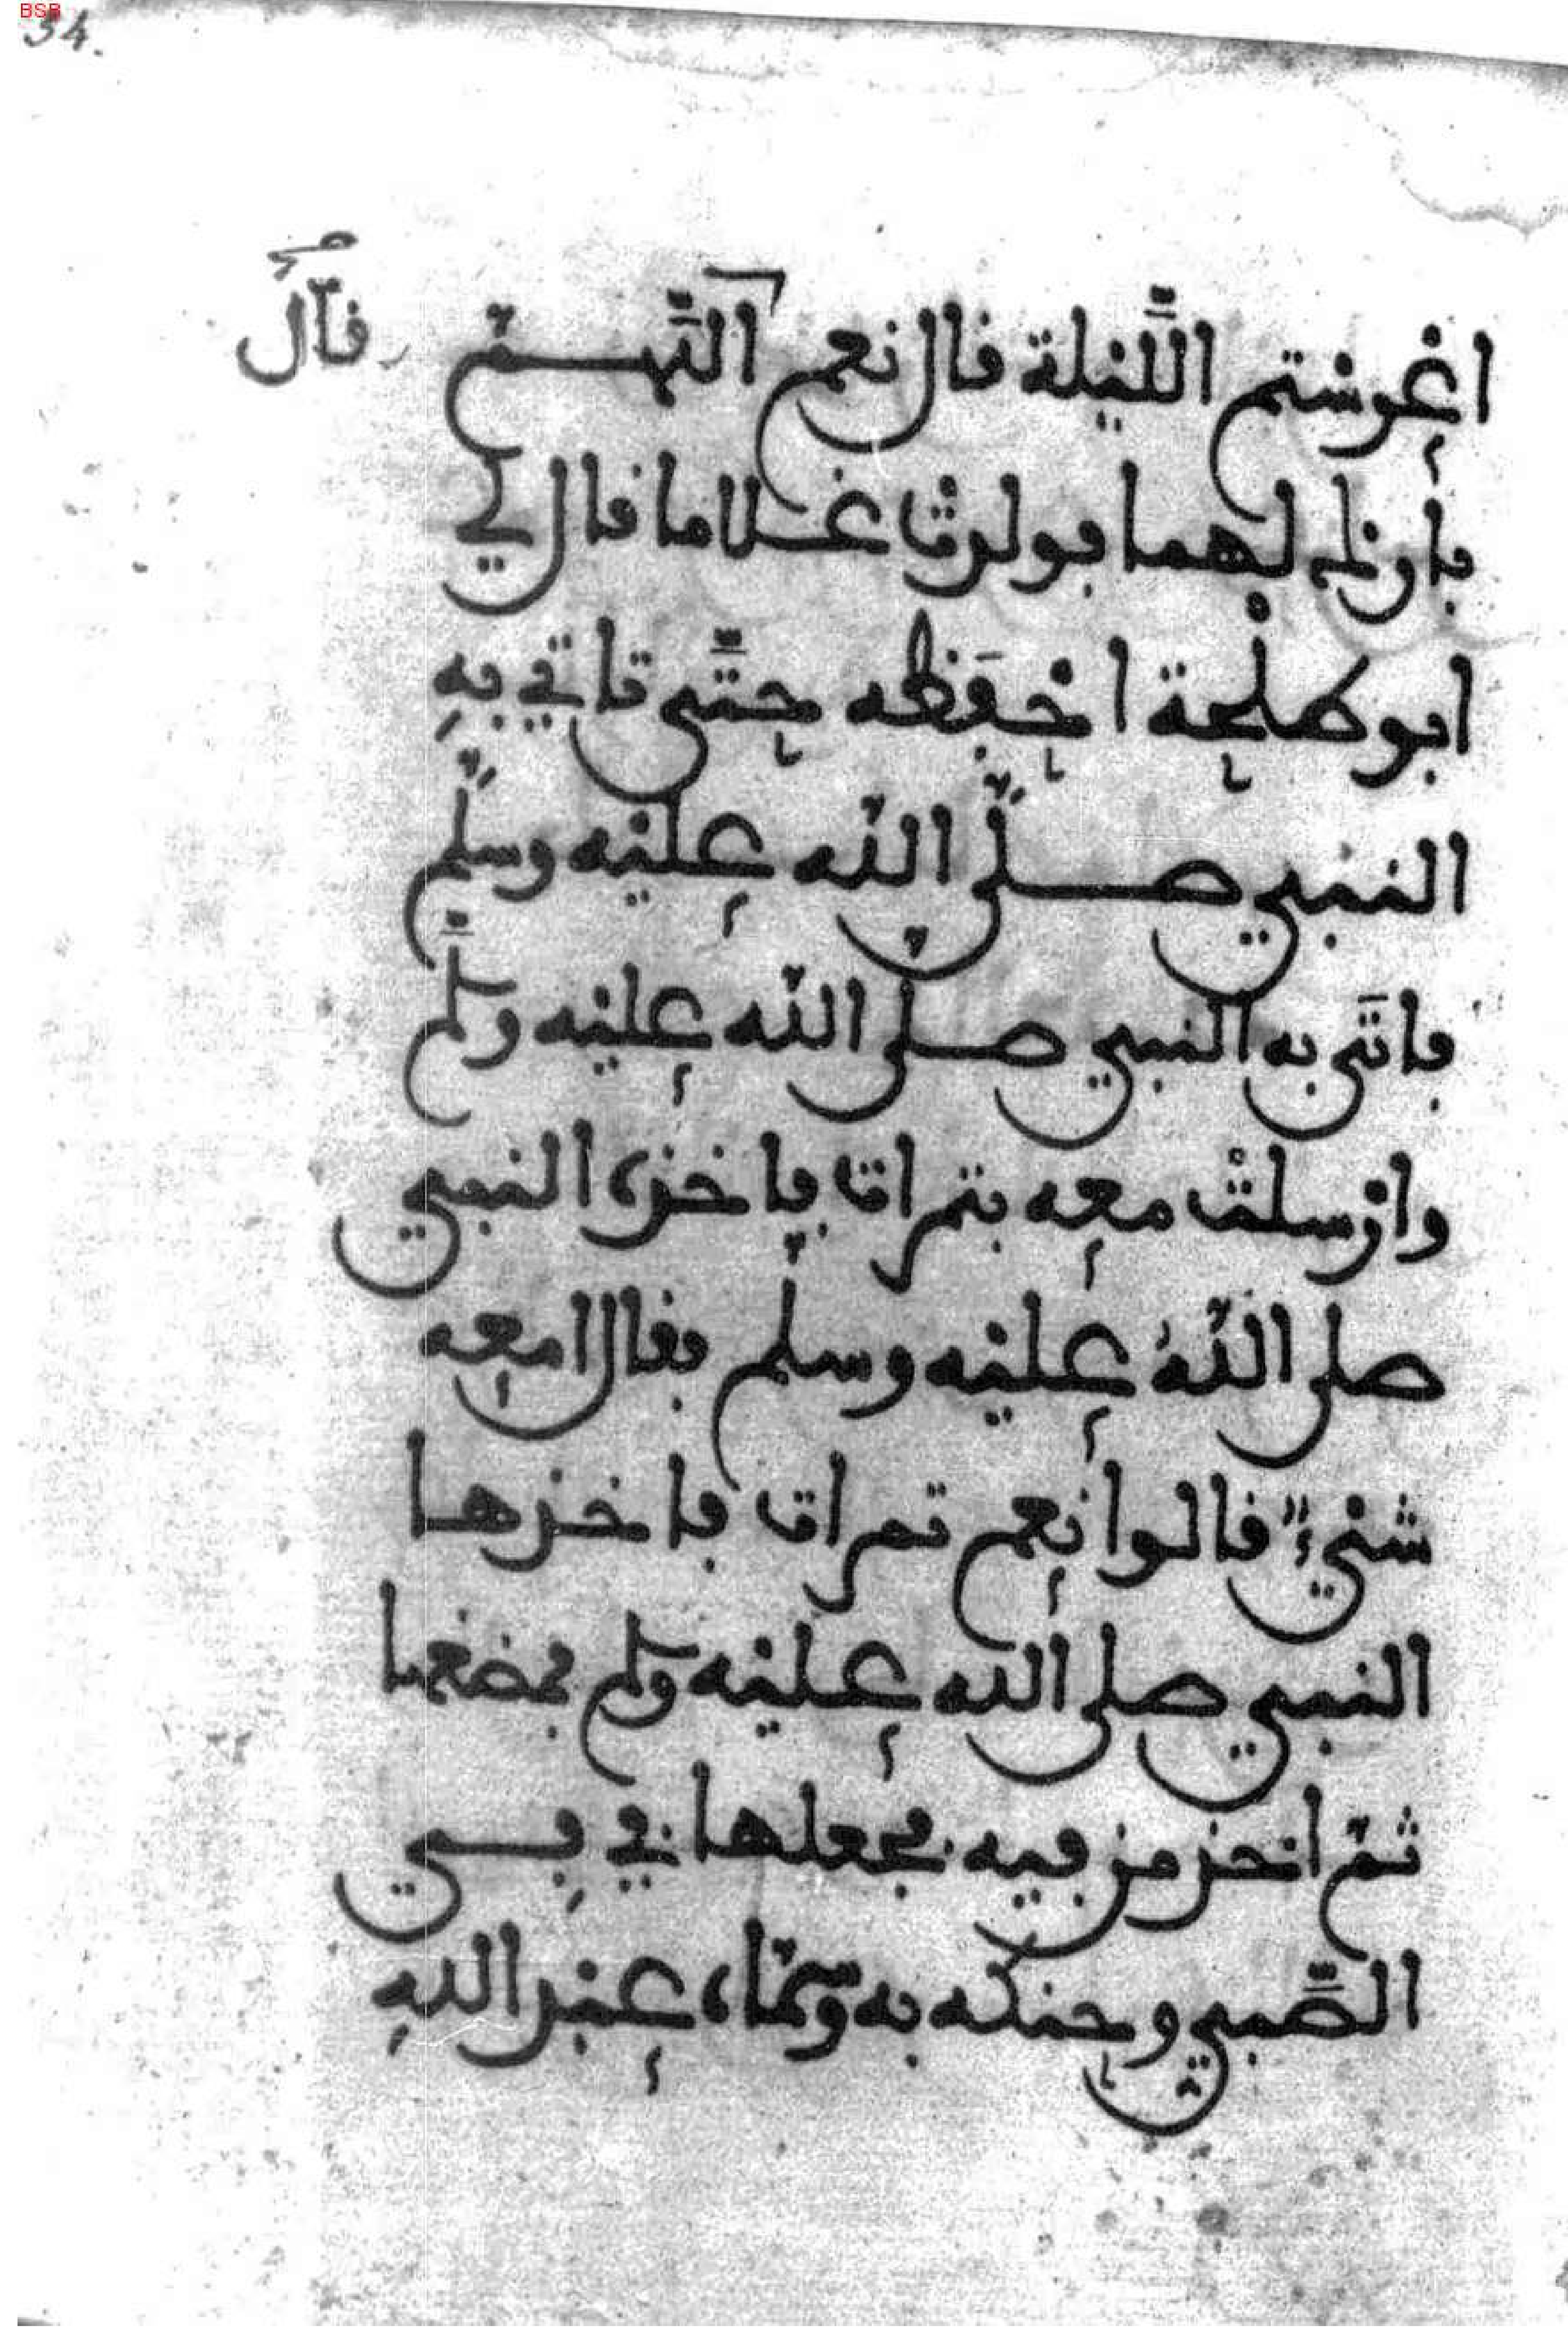 BSB
34.
اعرستم الليلة قال نعم اللهم قال صح
بارك لهما فولدت غلاما قال لي
ابو طلحة احفظه حتى تاتي به
النبي صلى الله عليه وسلم
فاتى به النبي صلى الله عليه وسلم
وارسلت معه بتمرات فاخذه النبي
صلى الله عليه وسلم فقال امعه
شيء قالوا نعم تمرات فاخذها
النبي صلى الله عليه وسلم فمضغها
ثم اخذ من فيه فجعلها في في
الصبي وحنكه به وسماه عبد الله